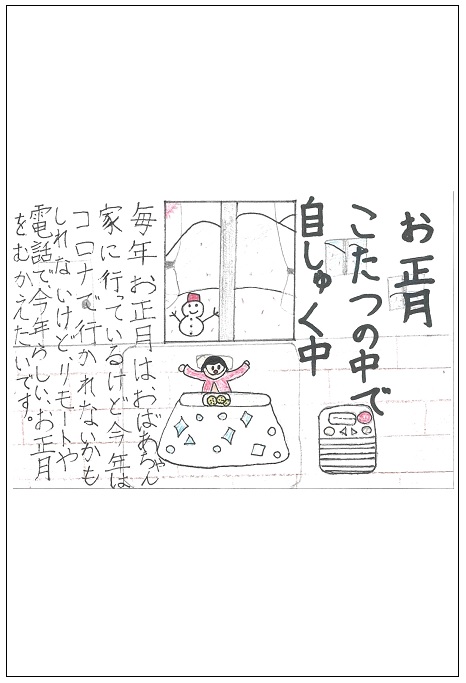 お正月
こたつの中で
自しゅく中
毎年お正月はおばあちゃん
家に行っているけど今年は
コロナで行かれないかも
しれないけど、リモートや
電話で今年らしいお正月
をむかえたいです。